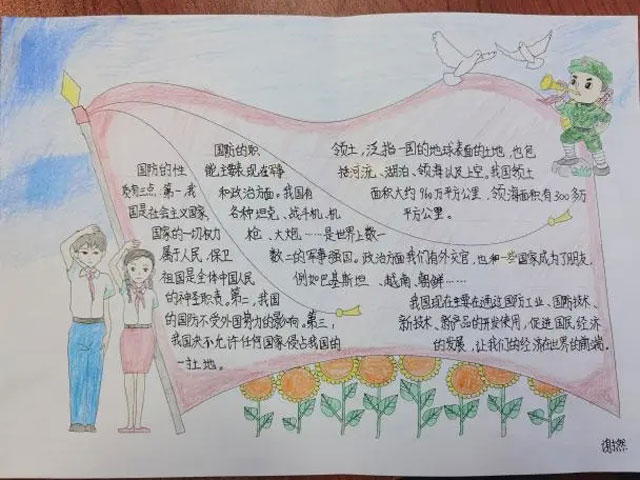 国防的性
质有三点,第一,我
国是社会主义国家,
国家的一切权力
属于人民,保卫
祖国是全体中国人民
的神圣职责。第二,我国
的国防不受外国势力的影响。第三,
我国决不允许任何国家侵占我国的
一寸土地。
国防的职
能,主要表现在军事
和政治方面。我国有
各种坦克、战斗机、机
枪、大炮……是世界上数一
数二的军事强国。政治方面我们有外交官,也和一些国家成为了朋友,
例如巴基斯坦、越南、朝鲜……
领土,泛指一国的地球表面的土地,也包
括河流、湖泊、领海以及上空。我国领土
面积大约960万平方公里,领海面积有300多万
平方公里。
我国现在主要在通过国防工业、国防技术、
新技术、新产品的开发使用,促进国民经济
的发展,让我们的经济在世界的前端。